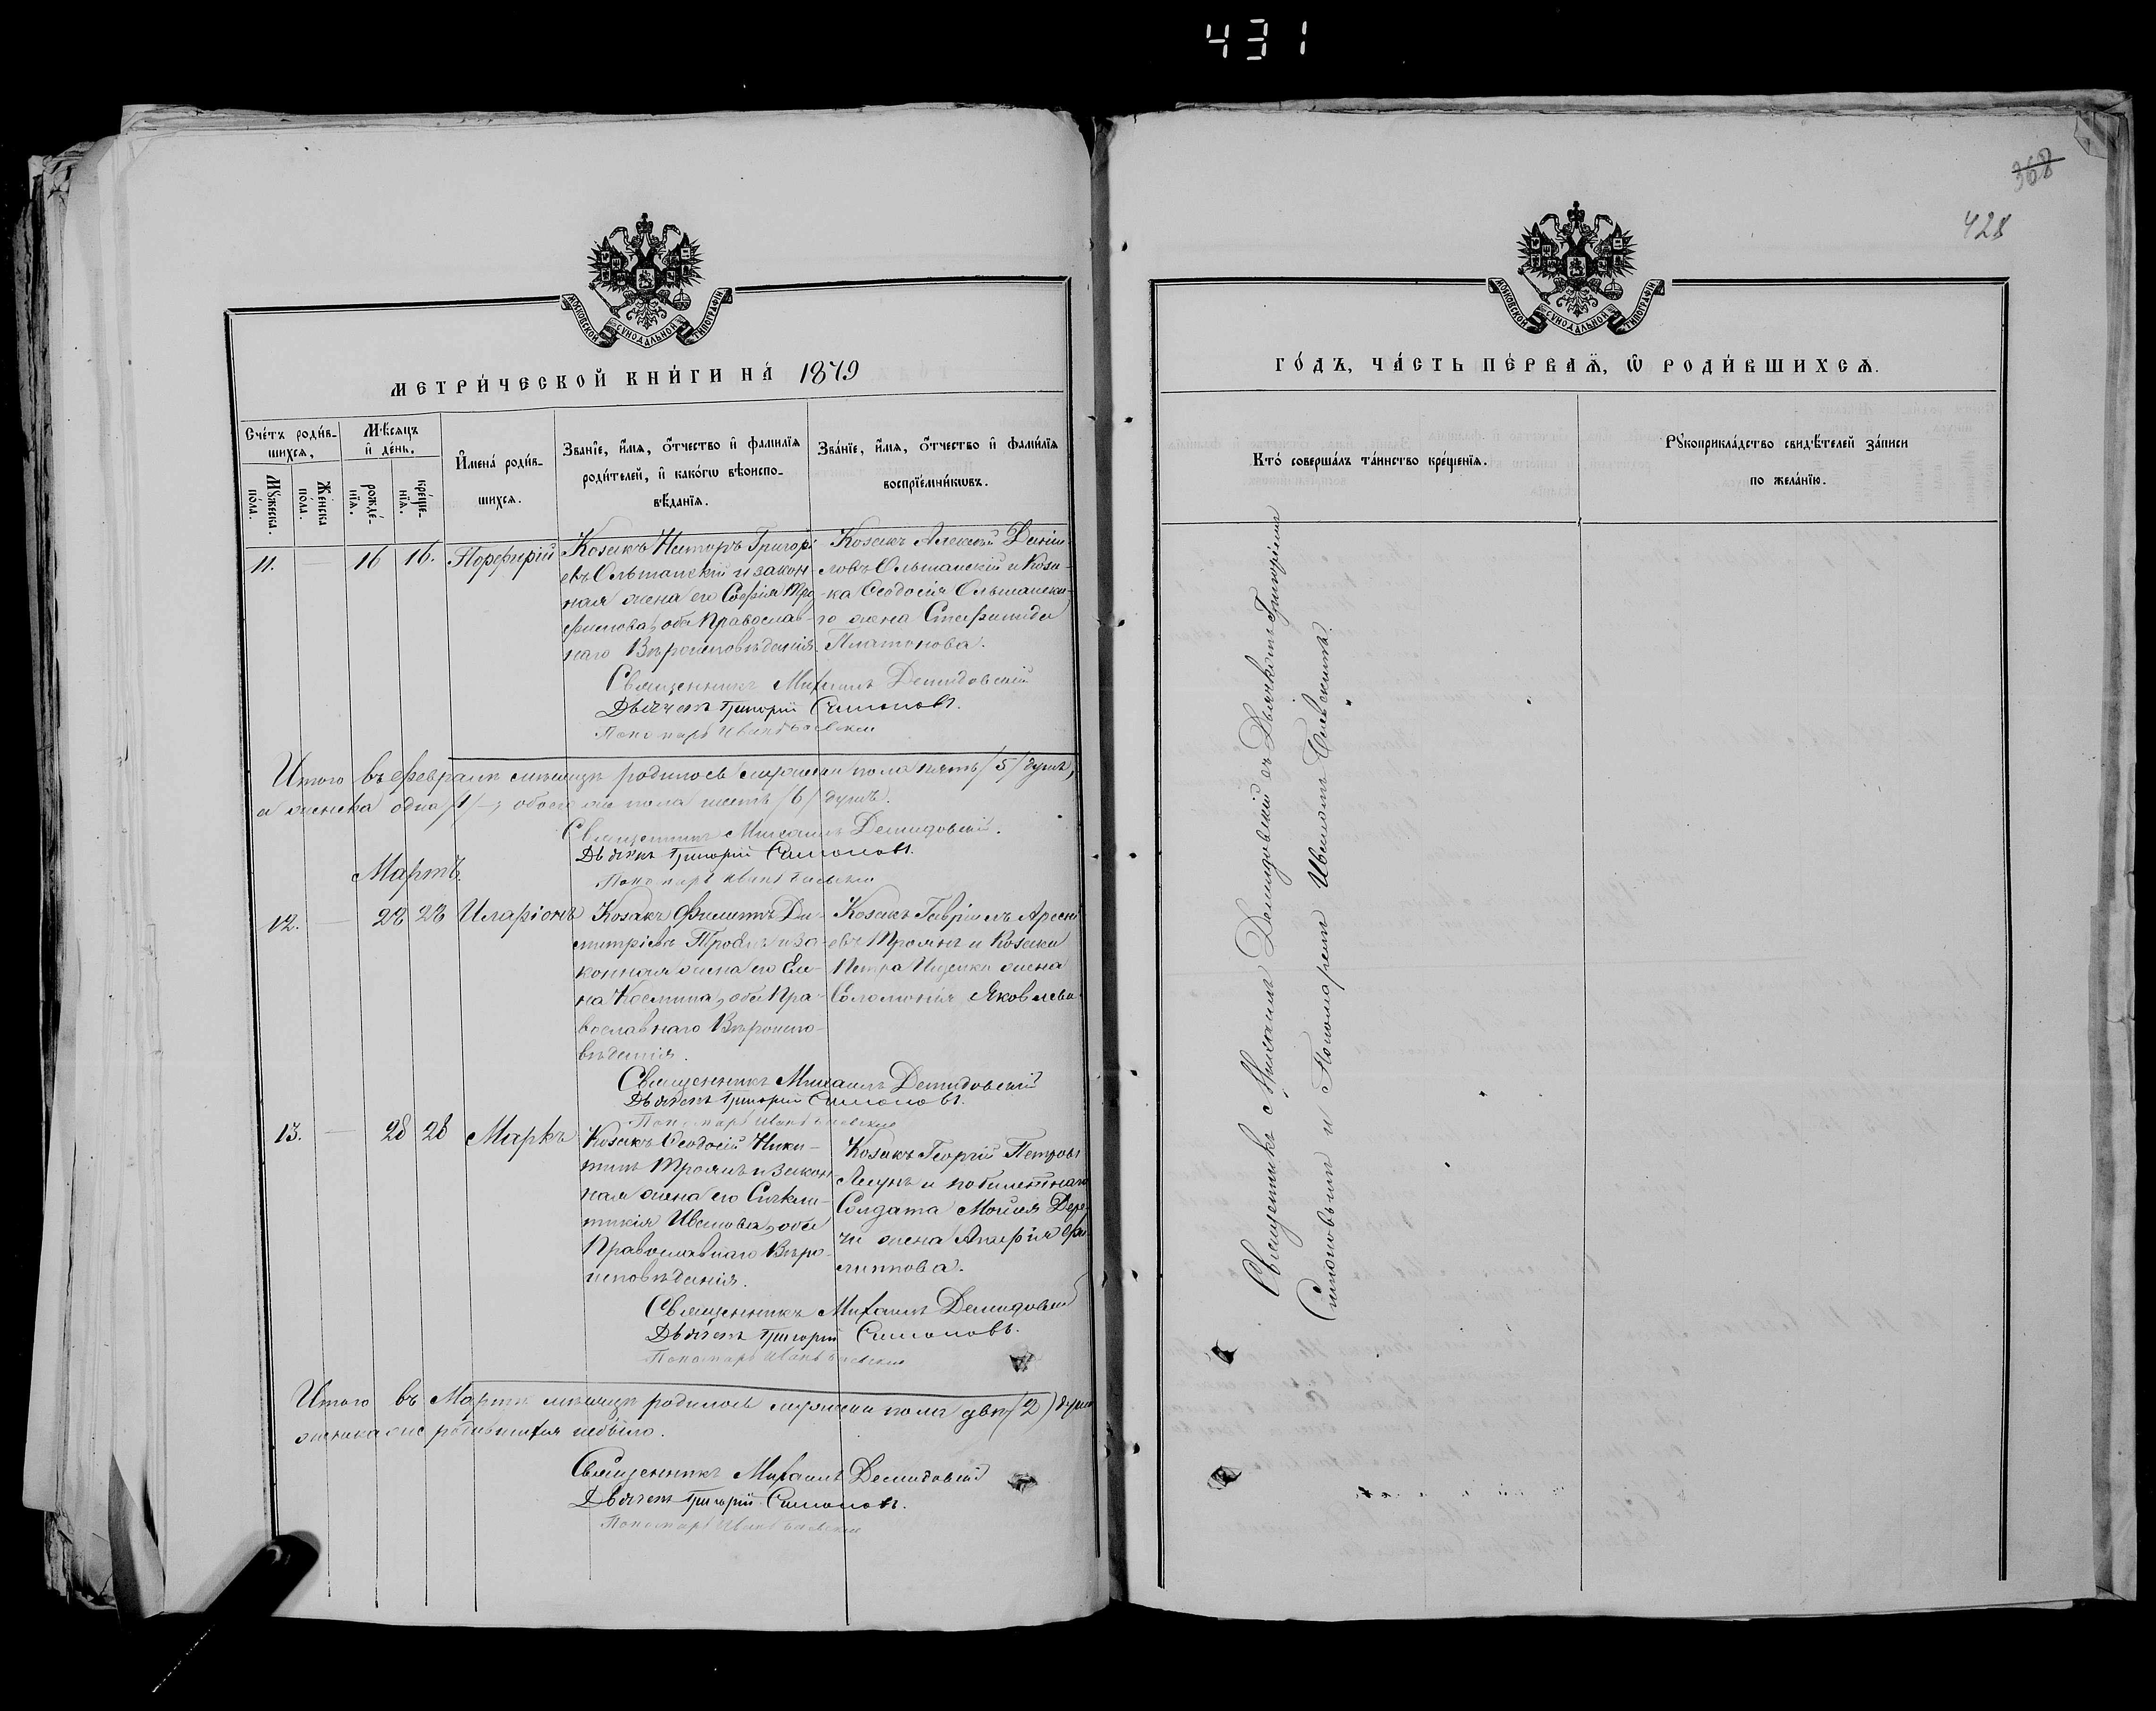 431
МОСКОВСКОЙ СУНОДАЛЬНОЙ ТИПОГРАФІИ
МЕТРИ́ЧЕСКОЙ КНИ́ГИ НА́ 1879
Сче́тъ роди́в-
шихся,
Мѣ́сяцъ
и҆ де́нь.
И҆мена̀ роди́в-
шихся.
Зва́нїе, и҆́мя, ѻ҆́тчество и҆ фами́лїя
роди́телей, и҆ како́гѡ вѣроиспо-
вѣ́данїя.
Зва́нїе, и҆́мя, ѻ҆́тчество и҆ фами́лїя
воспрїе́мникѡвъ.
Мꙋ́жеска.
по́ла.
Же́нска
по́ла.
рожде́-
нїя.
креще́-
нїя.
11. — 16 16. Порфирій
Козакъ Несторъ Григорі
евъ Ольшанскій и закон-
ная жена его Софія Тро
фимова, оба Православ-
наго Вѣроисповѣданія.
Козакъ Алексѣй Даніи-
ловъ Ольшанскій и Коза-
ка Ѳеодосія Ольшанска-
го жена Стефанида
Платонова.
Священникъ Михаилъ Демидовскій
Дьячекъ Григорій Симоновъ.
Пономарь Иванъ
Итого въ февралѣ мѣсяцѣ родилось мужеска пола пять /5/ душъ,
а женска одна /1/ —, обоего же пола шесть /6/ душъ.
Священникъ Михаилъ Демидовскій.
Дьячекъ Григорій Симоновъ.
Пономарь Иванъ
Мартъ.
12. — 28 28 Иларіонъ
Козакъ Филиппъ Ди-
митріевъ Троянъ и за-
конная жена его Еле-
на Космина, оба Пра-
вославнаго Вѣроиспо-
вѣданія.
Козакъ Гавріилъ Арсені
евъ Троянъ и Козака
Петра Ищенка жена
Соломонія Яковлева
Священникъ Михаилъ Демидовскій
Дьячекъ Григорій Симоновъ.
Пономарь Иванъ
13. — 28 28 Маркъ
Козакъ Ѳеодосій Ники-
тинъ Троянъ и закон-
ная жена его Синкли-
тикія Иванова, оба
Православнаго Вѣро-
исповѣданія.
Козакъ Георгій Петровъ
и побилетнаго
Солдата Моисея
жена Агафія Фи
липпова.
Священникъ Михаилъ Демидовскій
Дьячекъ Григорій Симоновъ.
Пономарь Иванъ
Итого въ Мартѣ мѣсяцѣ родилось мужеска пола двѣ (2) души
женска же родившихся небыло.
Священникъ Михаилъ Демидовскій
Дьячекъ Григорій Симоновъ.
Пономарь Иванъ
368
428
МОСКОВСКОЙ СУНОДАЛЬНОЙ ТИПОГРАФІИ
ГО́ДЪ, ЧА́СТЬ ПЕ́РВАЯ, Ѡ҆ РОДИ́ВШИХСЯ.
Кто̀ соверша́лъ та́инство креще́нїя.
Рꙋкоприкла́дство свидѣ́телей за́писи
по жела́нїю.
Священникъ Михаилъ Демидовскій съ Дьячкомъ Григоріемъ
Симоновымъ и Пономаремъ Иваномъ